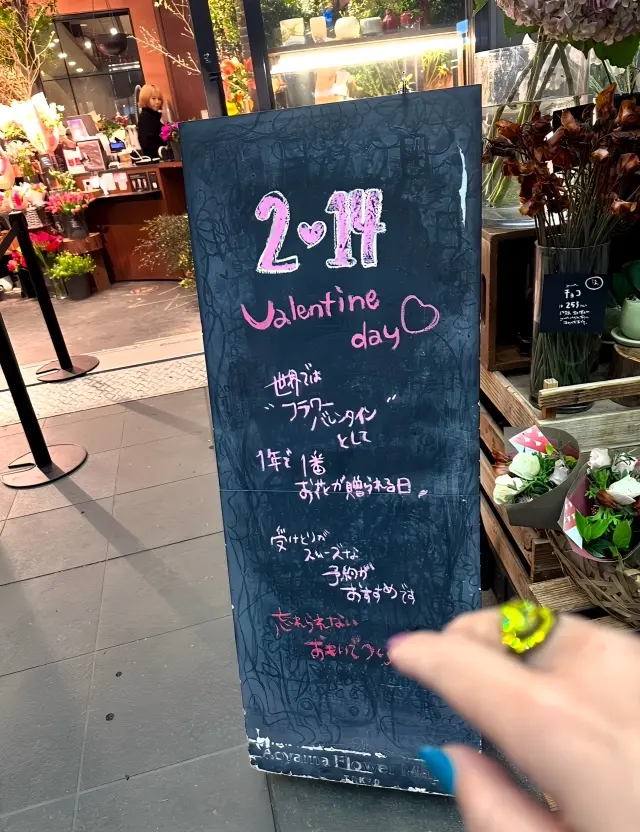 2♡14
Valentine
day♡
世界では
"フラワー
バレンタイン"
として
1年で 1番
お花が贈られる日。
受けとりが
スムーズな
予約が
おすすめです
忘れられない
おもいで
Aoyama Flower
チョコ